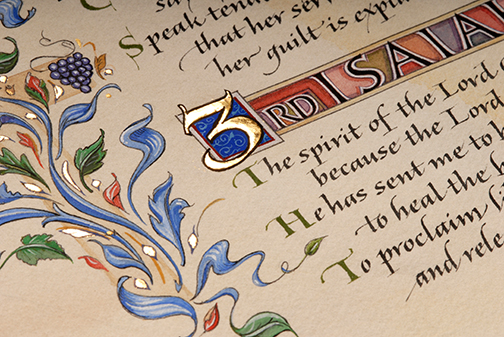 Speak
that her ser
her guilt is
3RD ISAIA
The spirit of the Lord
because the Lord
He has sent me to
to heal the
To proclaim
and rele